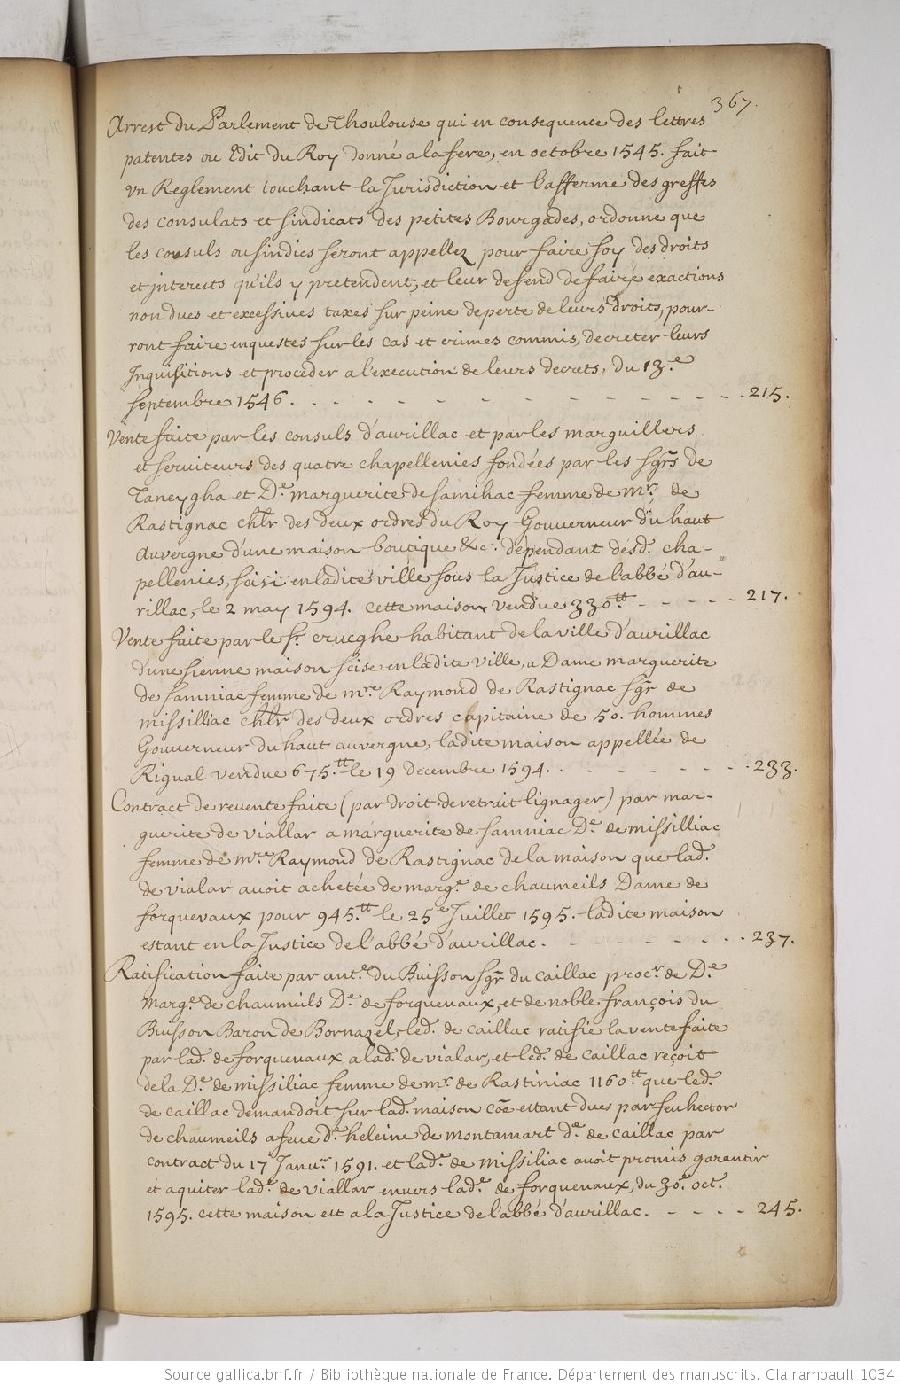 367.
Arrest du Parlement de Thoulouse qui en consequence des lettres
patentes ou Edit du Roy donné a la fere, en octobre 1545. fait
un Reglement touchant la Jurisdiction et l'afferme des greffes
des consulats et sindicats des petites Bourgades, ordonne que
les consuls ou sindics seront appellez pour faire foy des droits
et interets qu'ils y pretendent, et leur defend de faire exactions
non dues et excessives taxes sur peine de perte de leurs droits, pour-
ront faire enquestes sur les cas et crimes commis, decreter leurs
Inquisitions et proceder a l'execution de leurs decrets, du 13.e
septembre 1546. - - - - - - - - - - 215.
Vente faite par les consuls d'aurillac et par les marguillers
et serviteurs des quatre chapellenies fondées par les sgrs de
Taneygha et De marguerite de samihac femme de mr. de
Rastignac chlr des deux ordres du Roy Gouverneur du haut
auvergne d'une maison boutique &c. dependant desd. cha-
pellenies, scisi en ladite ville sous la Justice de l'abbé d'au-
rillac, le 2 may 1594. cette maison vendue 330.tt - - - - 217.
Vente faite par le sr. crueghe habitant de la ville d'aurillac
d'une sienne maison scise en ladite ville, a Dame marguerite
de samniac femme de mre Raymond de Rastignac sgr de
missilliac chlr des deux ordres capitaine de 50. hommes
Gouverneur du haut auvergne, ladite maison appellée de
Rigual vendue 675.tt le 19 decembre 1594. - - - - - 233.
Contract de revente faite (par droit de retrait lignager) par mar-
guerite de viallar a marguerite de samniac De. de missilliac
femme de mre Raymond de Rastignac de la maison que lad.
de vialar avoit achetée de marge. de chaumeils Dame de
forquevaux pour 945.tt le 25e Juillet 1595. ladite maison
estant en la Justice de l'abbé d'aurillac. - - - - 237.
Ratification faite par ant.e du Buisson sgr du caillac procr. de De
marge. de chaumeils De. de forquevaux, et de noble françois du
Buisson Baron de Bornazel, led. de caillac ratifie la vente faite
par lad. de forquevaux a lad. de vialar, et led. de caillac reçoit
de la De. de missiliac femme de mr. de Rastiniac 1160.tt que led.
de caillac demandoit sur lad. maison coe estant dues par feu hector
de chaumeils a feue De. heleine de montamart de. de caillac par
contract du 17 Janvr. 1591. et lade. de missiliac avoit promis garentir
et aquiter lade. de viallar envers lade. de forquevaux, du 30e. oct.
1595. cette maison est a la Justice de l'abbé d'aurillac. - - - - 245.
Source gallica.bnf.fr / Bibliothèque nationale de France. Département des manuscrits. Clairambault 1034